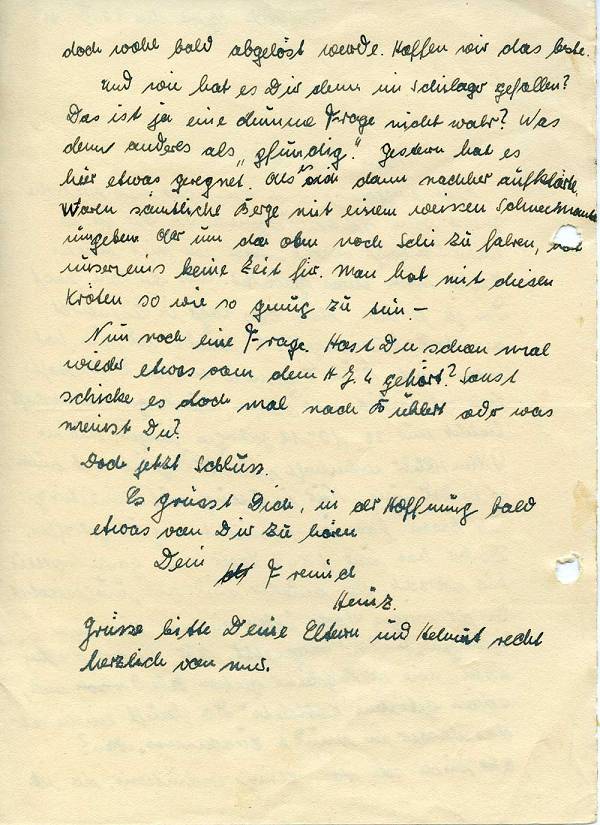 doch wohl bald abgelöst werde. Hoffen wir das beste.
Und wie hat es Dir denn im Schilager gefallen?
Das ist ja eine dumme Frage nicht wahr? Was
denn anderes als „pfundig". Gestern hat es
hier etwas geregnet. Als es sich dann nachher aufklärte
waren sämtliche Berge mit einem weissen Schneemantel
umgeben. Aber um da oben noch Schi zu fahren, hat
unsereins keine Zeit für. Man hat mit diesen
Kröten so wie so genug zu tun.—
Nun noch eine Frage. Hast Du schon mal
wieder etwas von dem gehört? Sonst
schicke es doch mal nach oder was
meinst Du?
Doch jetzt Schluss.
Es grüsst Dich, in der Hoffnung bald
etwas von Dir zu hören
Dein Freund
Heinz.
Grüsse bitte Deine Eltern und Helmut recht
herzlich von mir.